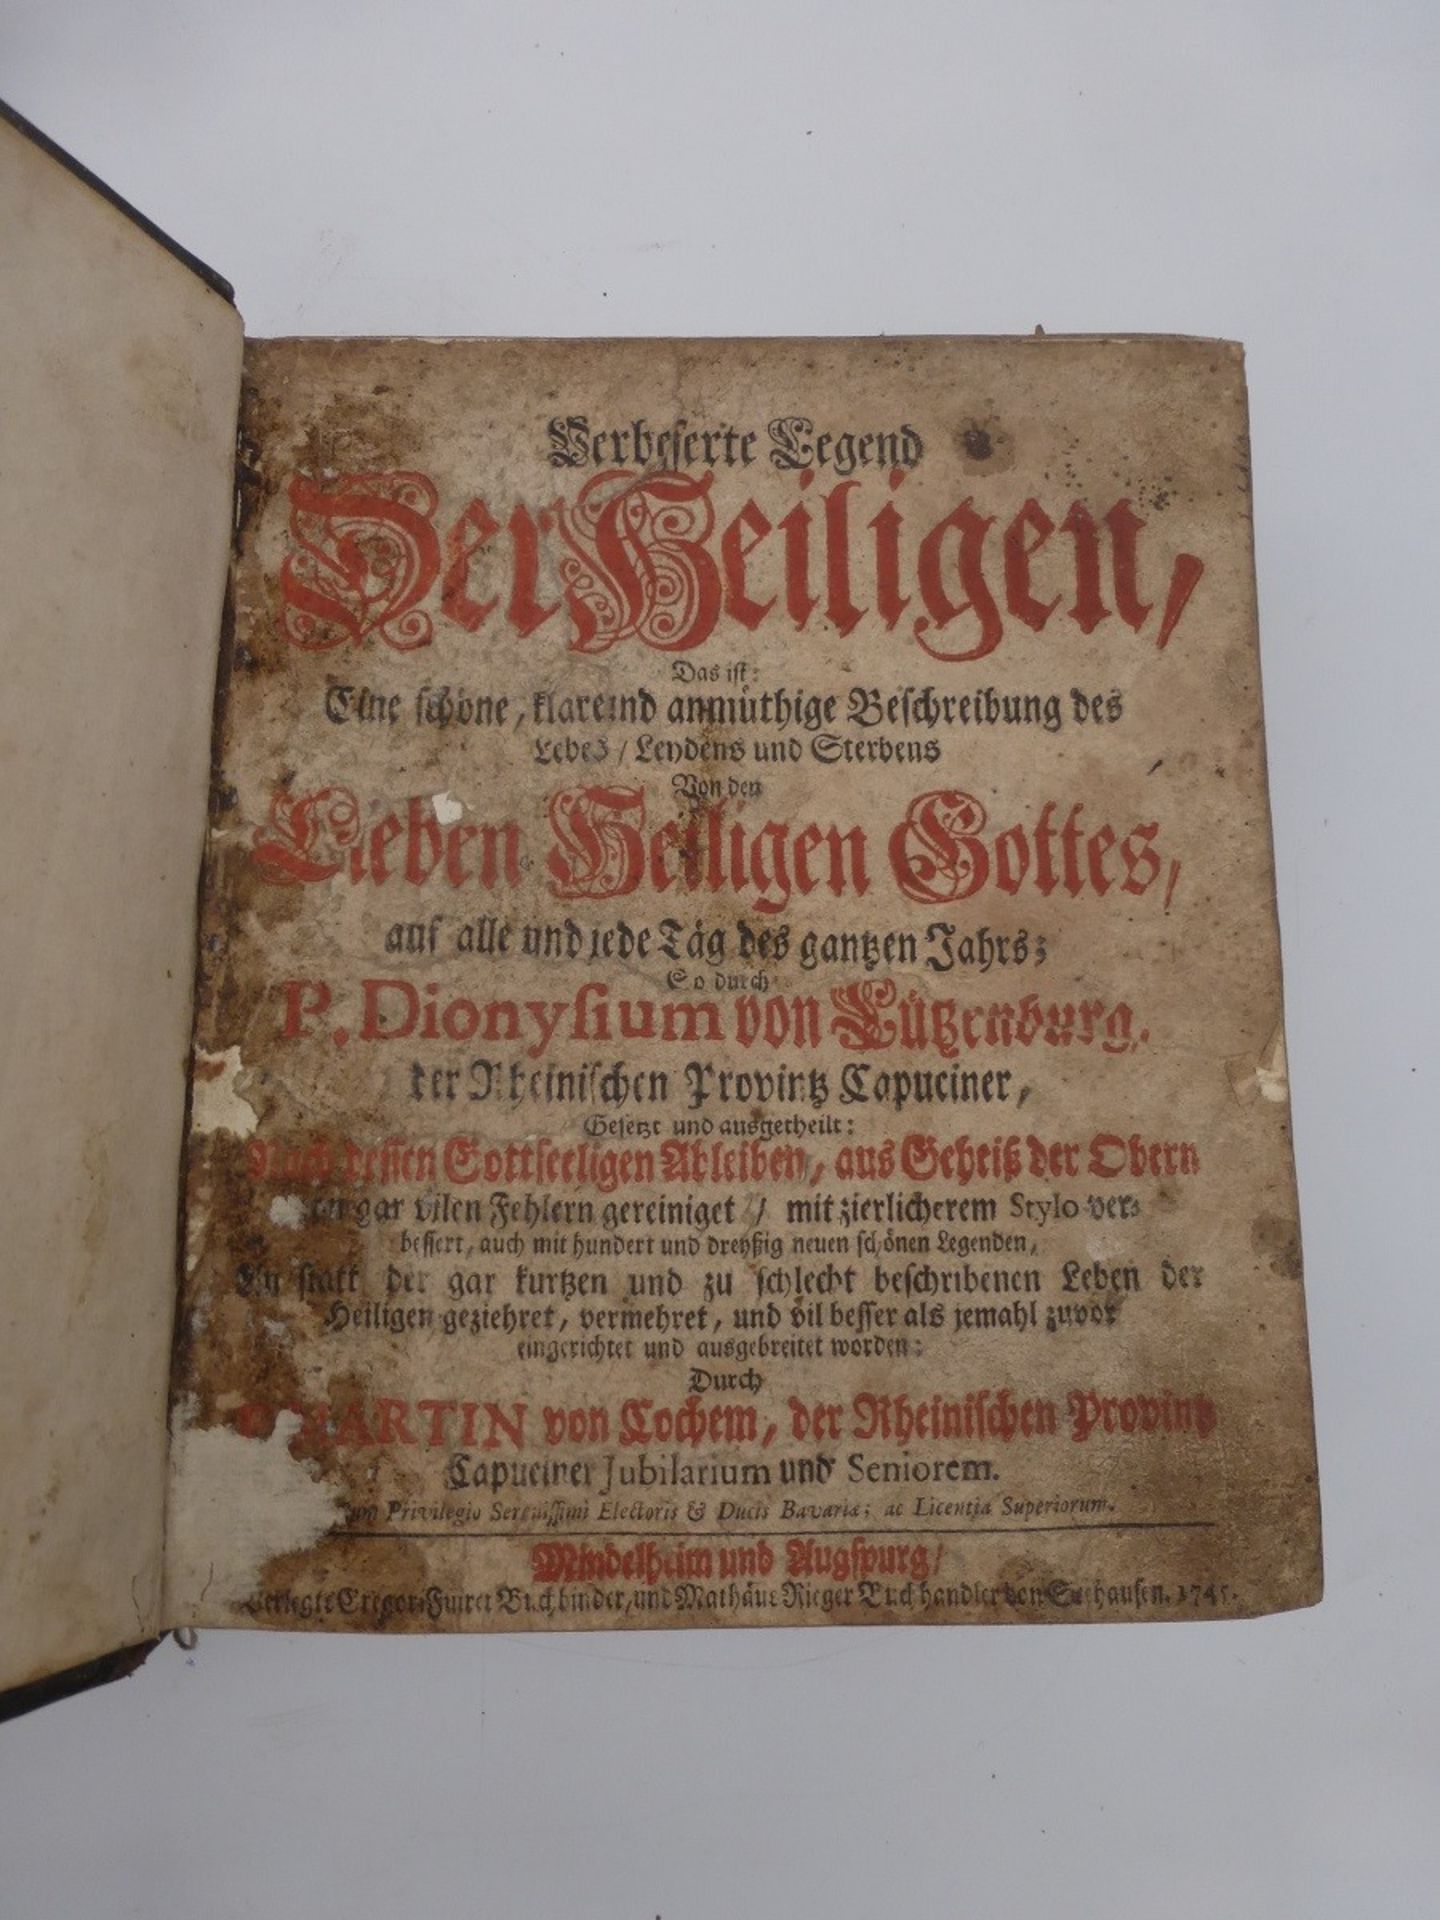 Verbeserte Legend
Der Heiligen,
Das ist:
Eine schöne, klare und anmüthige Beschreibung des
Lebens / Leydens und Sterbens
Von den
Lieben Heiligen Gottes,
auf alle und jede Täg des gantzen Jahrs;
So durch
P. Dionysium von Lützenburg,
der Rheinischen Provintz Capuciner,
Gesetzt und ausgetheilt:
Nach dessen Gottseeligen Ableiben, aus Geheiß der Obern
gar vilen Fehlern gereiniget / mit zierlicherem Stylo ver-
bessert, auch mit hundert und dreyßig neuen schönen Legenden,
An statt der gar kurtzen und zu schlecht beschribenen Leben der
Heiligen geziehret, vermehret, und vil besser als jemahl zuvor
eingerichtet und ausgebreitet worden:
Durch
P. MARTIN von Cochem, der Rheinischen Provintz
Capuciner Jubilarium und Seniorem.
Cum Privilegio Serenissimi Electoris & Ducis Bavariæ; ac Licentia Superiorum.
Mindelheim und Augspurg /
Verlegts Buchbinder, und Mathäus Rieger Buchhandler von 1745.